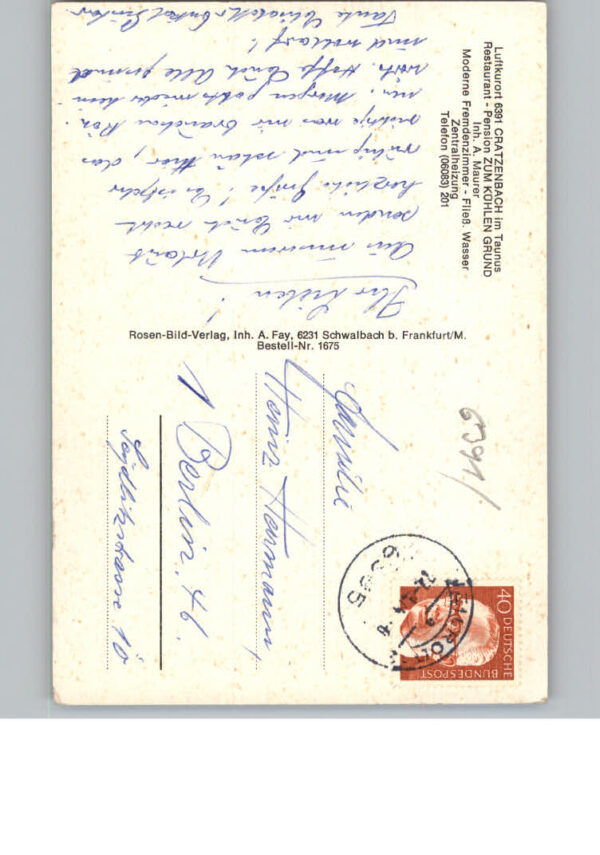 Luftkurort 6391 CRATZENBACH im Taunus
Restaurant - Pension ZUM KÜHLEN GRUND
Inh. A. Maurer
Moderne Fremdenzimmer - Fließ. Wasser
Zentralheizung
Telefon (06083) 201
Ihr Lieben!
Aus unserem Urlaub
senden wir Euch recht
herzliche Grüße! Es ist sehr
ruhig und schön hier, das
richtige was wir brauchen kön-
nen. Morgen geht's wieder heim-
wärts. Hoffe Euch alle gesund
und wohlauf!
Tante + Onkel
Rosen-Bild-Verlag, Inh. A. Fay, 6231 Schwalbach b. Frankfurt/M.
Bestell-Nr. 1675
40
DEUTSCHE
BUNDESPOST
6391
Familie
Heinz Hermann
1 Berlin. 46
10